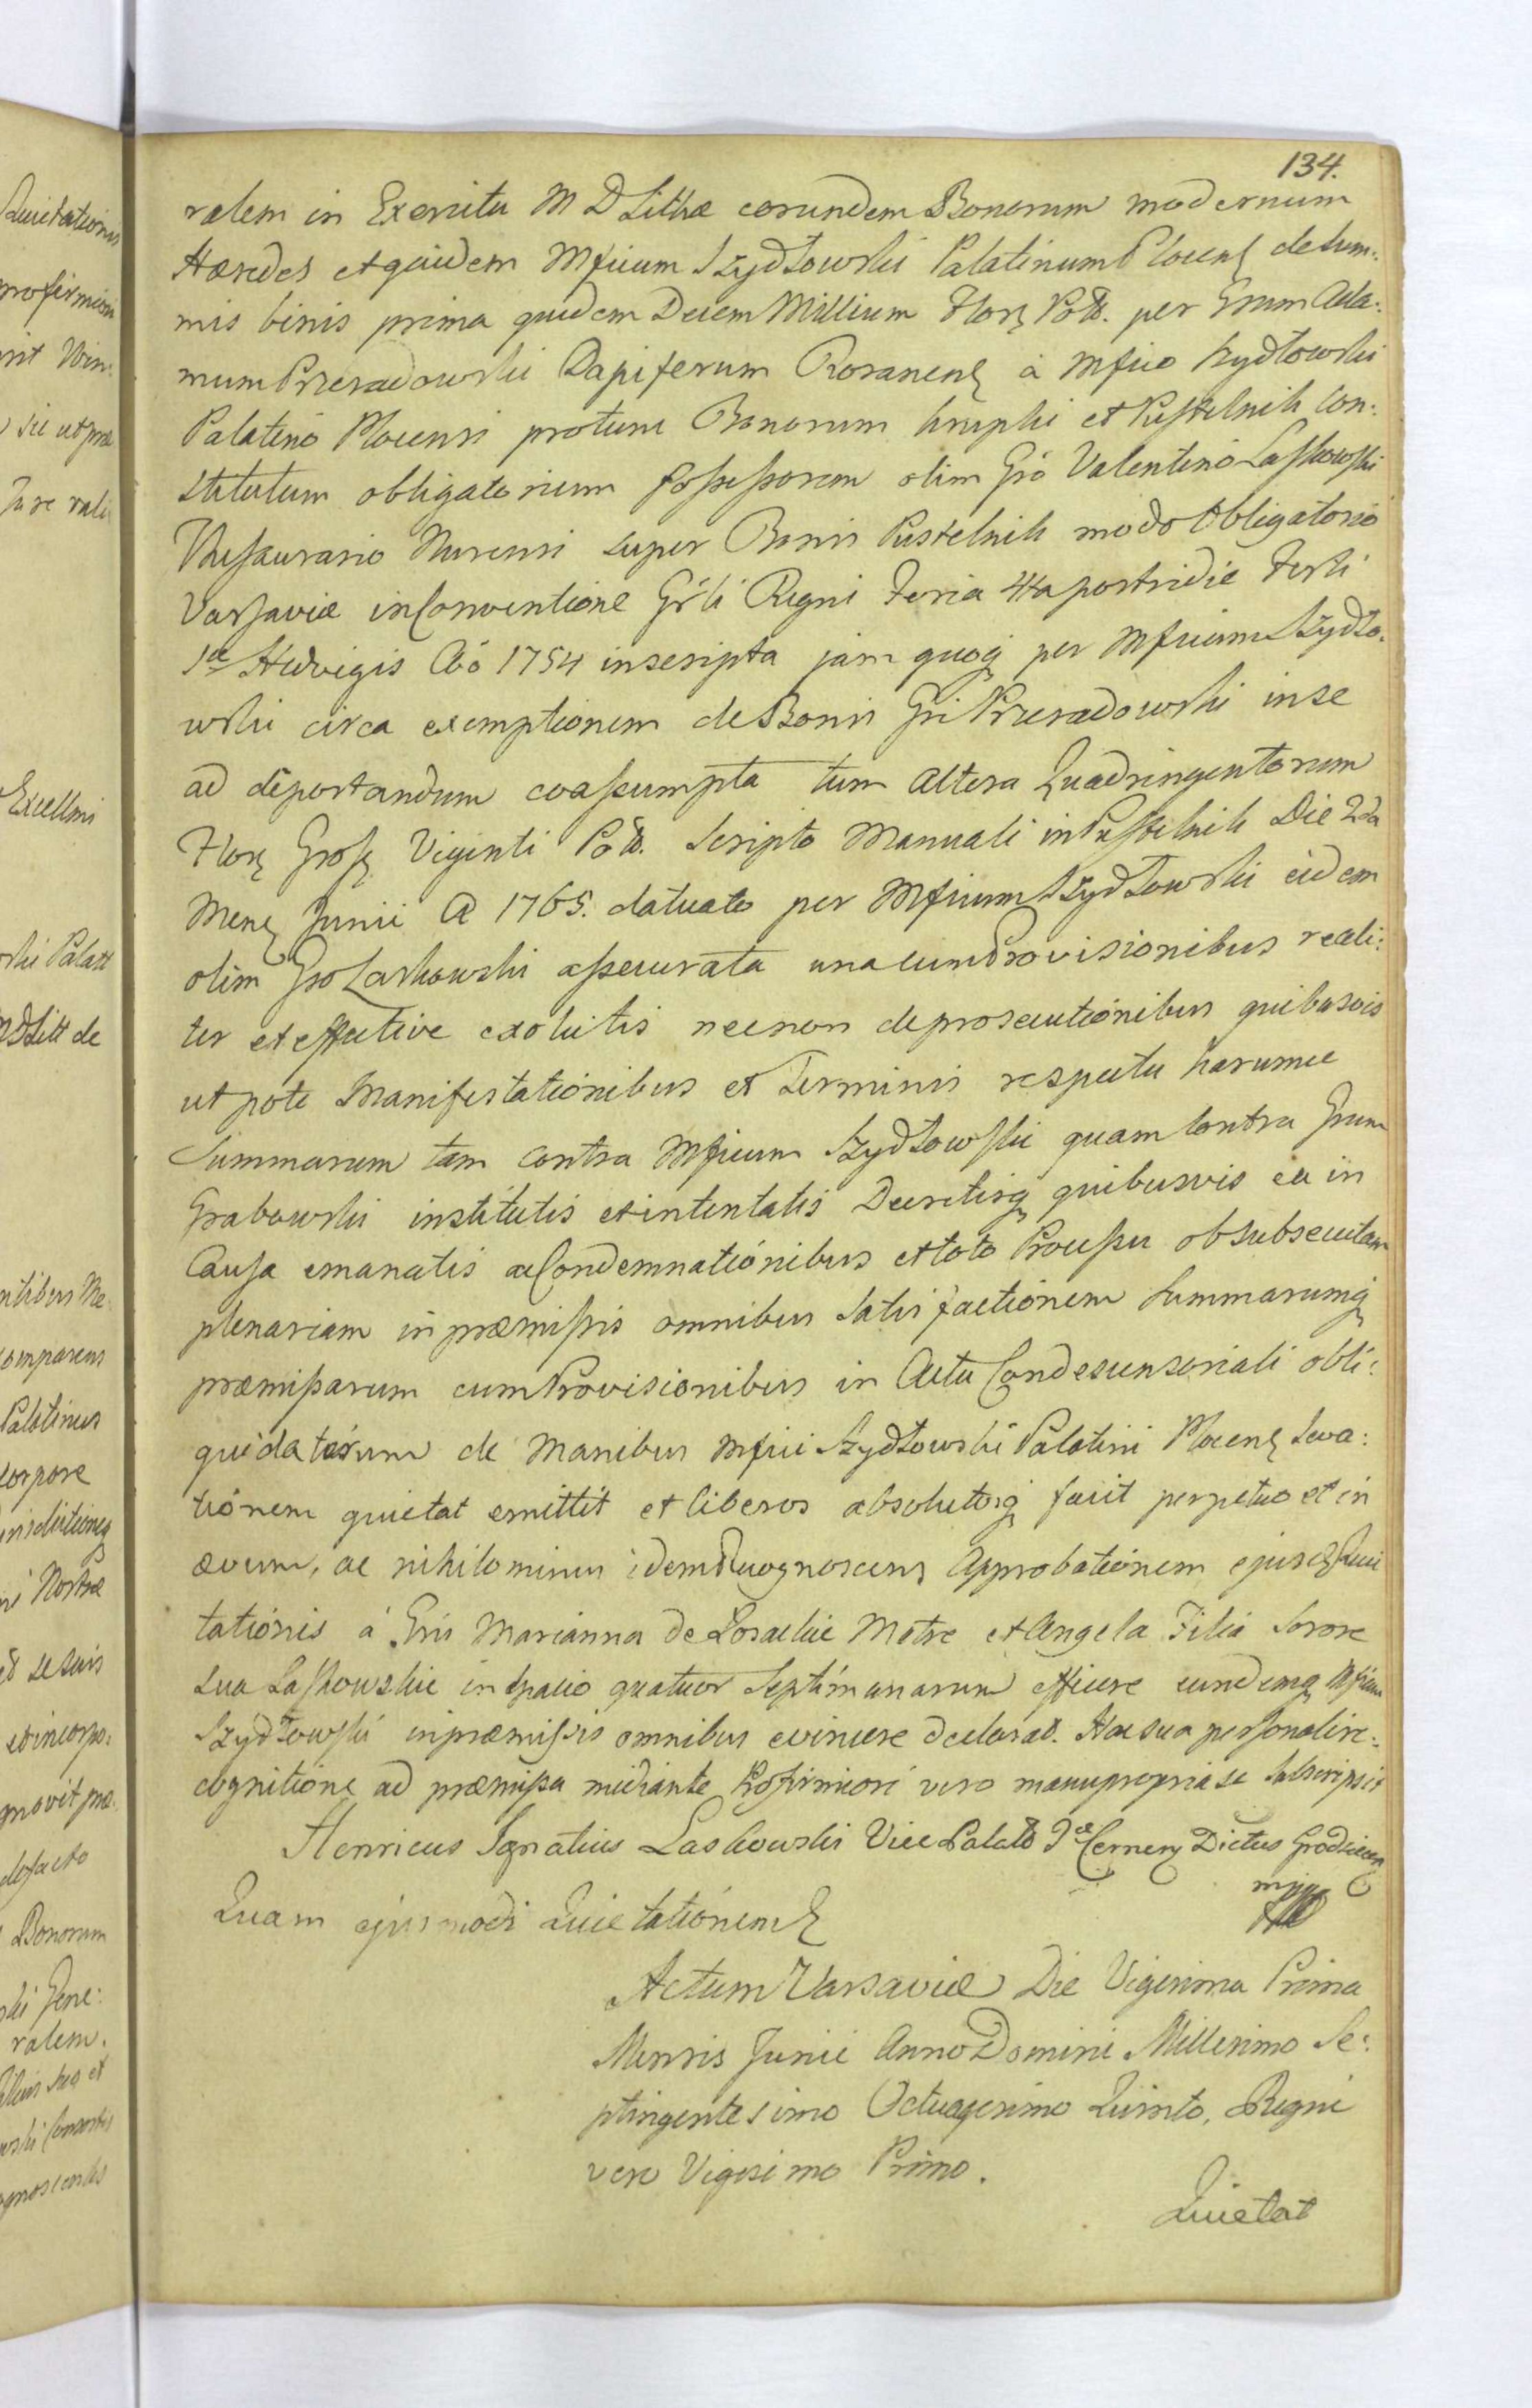 134.
ralem in Exercitu M D Litthæ eorundem Bonorum modernum
Hæredes et quidem Mficum Szydłowski Palatinum Plocens de Sum:
mis binis prima quidem Decem Millium Flor Poll. per Grum Ada:
mum Przeradowski Dapiferum Rozanens à Mfico Szydłowski
Palatino Plocensi protunc Bonorum Krupki et Pustelnik Con:
stitutum obligatorium possessorem olim Gro Valentino Laskowski
Thesaurario Nurensi super Bonis Pustelnik modo Obligatorio
Varsaviæ in Conventione Grli Regni Feria 4ta postridie Festi
Stæ Hedvigis Aõ 1754 inscripta jam quoq per Mficum Szydło:
wski circa exemptionem de Bonis Gri Przeradowski in se
ad deportandum coassumpta tum altera Quadringentorum
Flor Gross Viginti Poll. Scripto Manuali in Pustelnik Die 2da
Mens Junii A 1765. datuato per Mficum Szydłowski eidem
olim Gro Laskowski assecurata una cum Provisionibus reali:
ter et effective exolutis necnon de prosecutionibus quibusvis
utpote Manifestationibus et Terminis respectu harumce
Summarum tam contra Mficum Szydłowski quam contra Grum
Grabowski institutis et intentatis Decretisq quibusvis ea in
Causa emanatis ac Condemnationibus et toto Processu ob subsecutam
plenariam in præmissis omnibus satisfactionem Summarumq
præmissarum cum Provisionibus in Actu Condescensoriali obli:
quidatarum de Manibus Mfici Szydłowski Palatini Plocens Leva:
tionem quietat emittit et liberos absolutosq facit perpetuo et in
ævum, ac nihilominus idem Recognoscens Approbationem ejusd Quie
tationis à Gris Marianna de Matre et Angela Filia Sorore
sua Laskowskie in spatio quatuor Septimanarum efficere eundemq Mficum
Szydłowski in præmissis omnibus evincere declarat. Hac sua personali re:
cognitione ad præmissa mediante Pro firmiori vero manu propria se subscripsit
Henricus Ignatius Laskowski Vice Palatt Tæ Cernens Dictus Grodziecens
mpp
Quam ejusmodi Quietationem
Actum Varsaviæ Die Vigesima Prima
Mensis Junii Anno Domini Millesimo Se:
ptingentesimo Octuagesimo Quinto, Regni
vero Vigesimo Primo.
Quietat